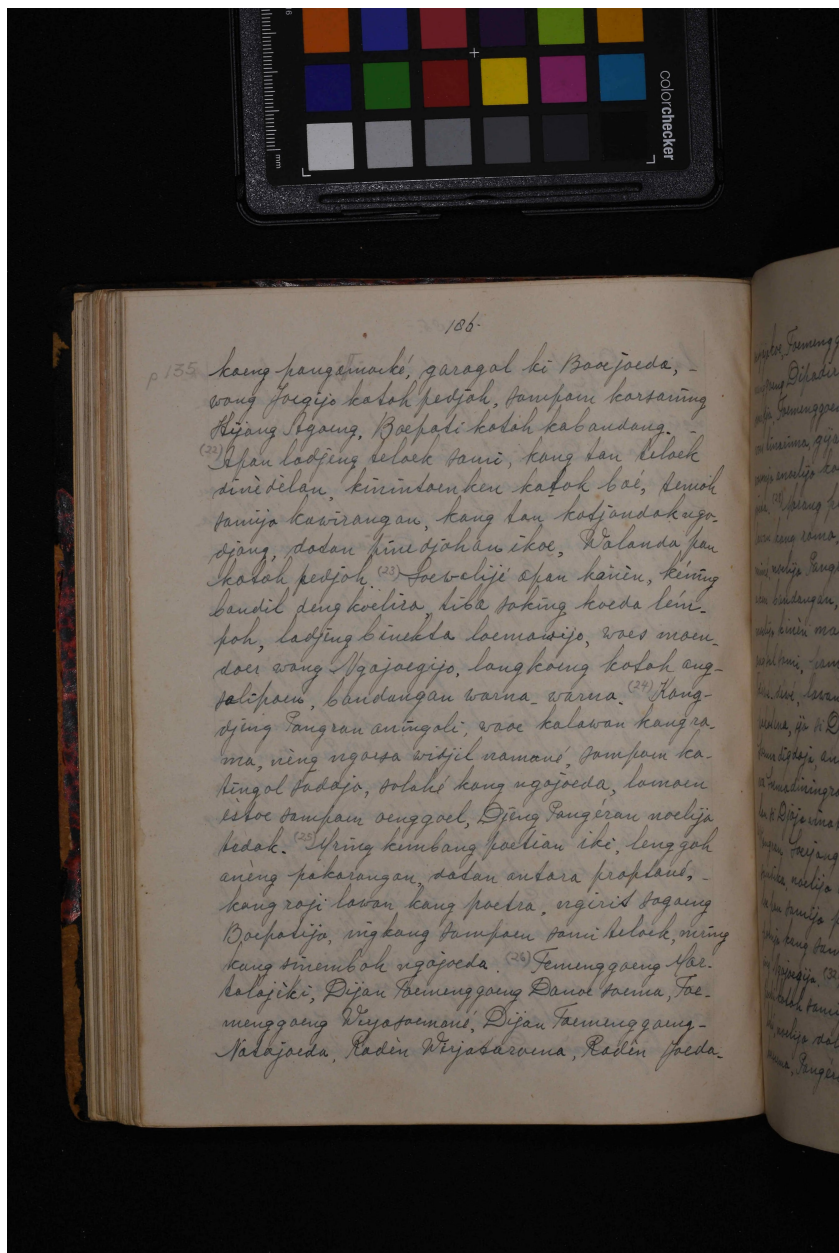 colorchecker
mm
186
p 135 kaeng pangamoeké, garagol ki Baoejoeda, -
wong Joegijo katah pedjah, sampoen karsaning
Hijang Agoeng, Boepati katah kabandang. -
(22) Apan ladjeng teloek sami, kang tan teloek
dinedelan, kinintoenken katah baé, temah
samijo kawirangan, kang tan katjandak ngo-
djang, dadan pinedjahan ikoe, Walanda pan
katah pedjah. (23) Soewelijé apan kanin, kéning
bandil deng koelira, tiba saking koeda lém-
poh, ladjing binekta loemawijo, woes moen-
doer wong Ngajoegijo, langkoeng katah ang-
salipoen, bandangan warna-warna. (24) Kang-
djing Pangran aningali, waoe kalawan kang ra-
ma, nèng ngarsa widjil namané, sampoen ka-
tingal sadaja, solahé kang ngajoeda, lamoen
èstoe sampoen oenggoel, Djeng Pangéran noelijo
tedak. (25) Mring kembang poetian iki, lenggah
anèng pakarangan, datan antara praptané, -
kang raji lawan kang poetra, ngirit sagoeng
Boepatijo, ingkang sampoen sami teloek, mring
kang sinembah ngajoeda. (26) Temenggoeng Mar-
talajiki, Dijan Toemenggoeng Danoe soema, Toe-
menggoeng Wirjasoemané, Dijan Toemenggoeng -
Natajoeda, Radèn Wirjataroena, Radèn Joeda-